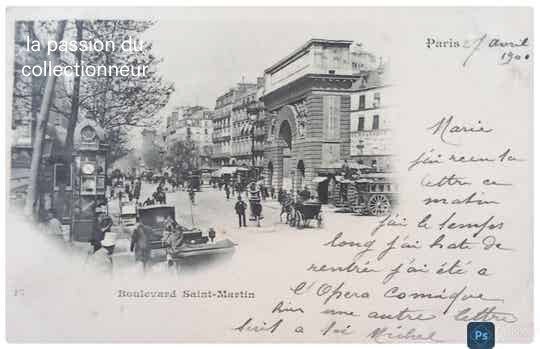 la passion du
collectionneur
Paris 27 avril
1900
Marie
j'ai reçu ta
lettre ce
matin
j'ai le temps
long j'ai hate de
rentrée j'ai été a
l'Opera Comique
une autre lettre
a toi Michel
17
Boulevard Saint-Martin
Ps